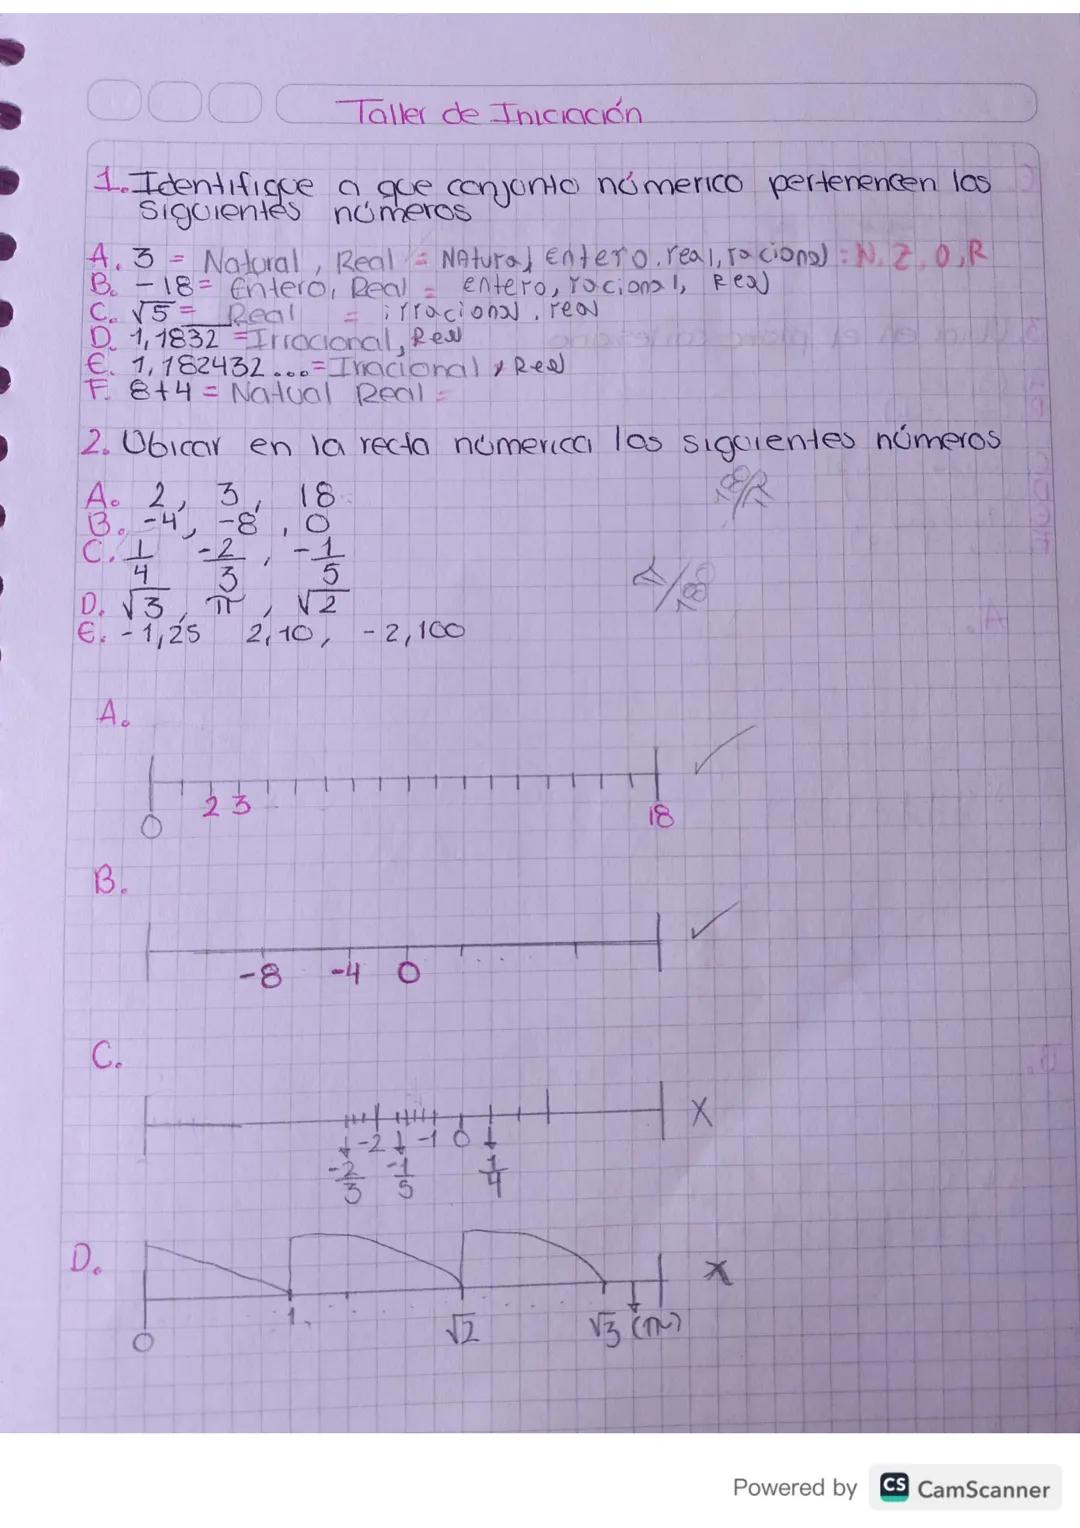 Taller de Iniciación
1. Identifique a que conjunto númerico pertenencen los
siguientes números
A. 3 = Natural, Real = NAtural, Entero, real, racional : N, Z, Q, R
B. -18 = Entero, Real = entero, racional, Real
C. √5 = Real = irracional, real
D. 1,1832 = Irracional, Real
E. 1,182432... = Irracional, Real
F. 8+4 = Natual Real =
2. Ubicar en la recta númerica los siguientes números
A. 2, 3, 18
B. -4, -8, 0
C. 1/4 -2/3, -1/5
D. √3, π, √2
E. -1,25 2,10, -2,100
A.
0 2 3 18
B.
-8 -4 0
C.
X
-2 -1 0
-2/3 -1/5 1/4
D.
X
0 1 √2 √3 (π)
Powered by CS CamScanner